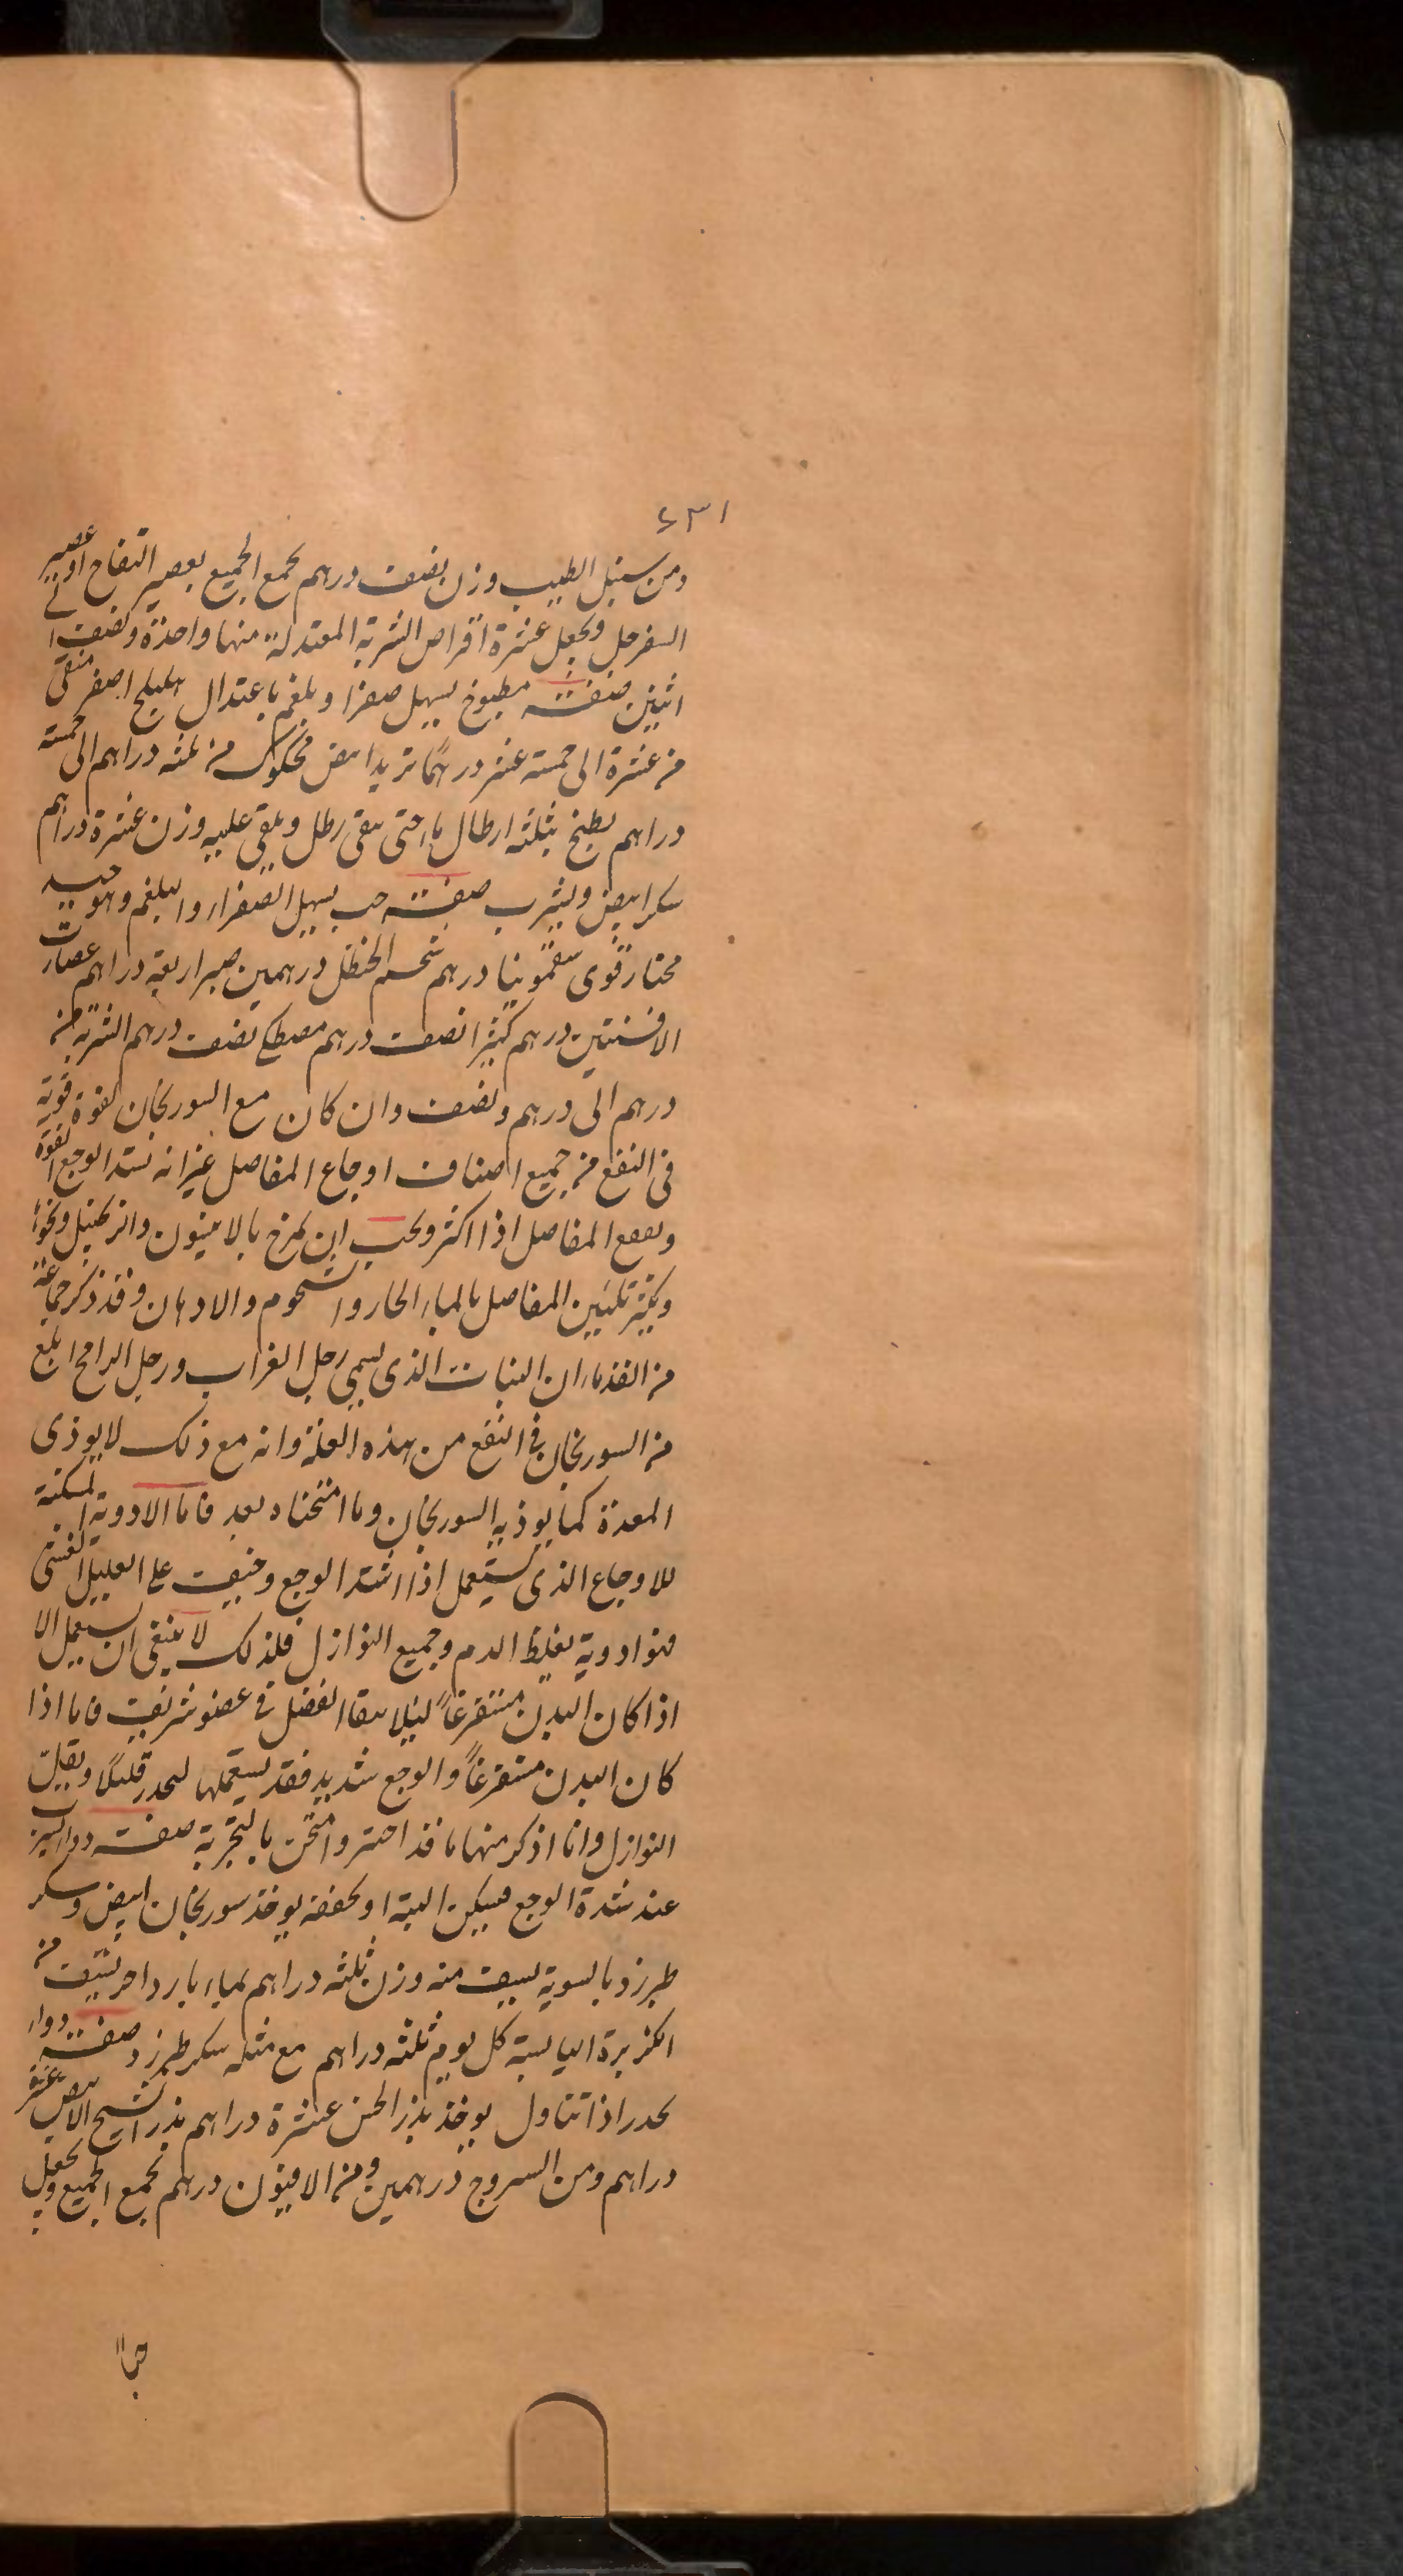 ٤٣١
ومن سنبل الطيب وزن نصف درهم يجمع الجميع بعصير التفاح او عصير
السفرجل ويجعل عشرة اقراص الشربة المعتدلة منها واحدة ونصف الى
اثنين صفته مطبوخ يسهل صفرا وبلغم باعتدال هليلج اصفر منقى
من عشرة الى خمسة عشر درهما تربد ابيض محكوك من ثلثه دراهم الى خمسة
دراهم يطبخ بثلثه ارطال ماء حتى يبقى رطل ويلقى عليه وزن عشرة دراهم
سكر ابيض ويشرب صفته حب يسهل الصفراء والبلغم وهو جيد
مختار قوى سقمونيا درهم شحم الحنظل درهمين صبر اربعة دراهم عصارت
الافسنتين درهم كثيرا نصف درهم مصطكى نصف درهم الشربة من
درهم الى درهم ونصف وان كان مع السورنجان لقوة قوية
فى النفع من جميع اصناف اوجاع المفاصل غير انه
المفاصل اذا اكثر ويجب ان يمزج بالافيون والزنجبيل ونحوها
ويكثر تليين المفاصل بالماء الحار والشحوم والادهان وقد ذكر جماعة
من القدماء ان النبات الذى يسمى رجل الغراب ورجل الدامج ابلغ
من السورنجان فى النفع من هذه العلة وانه مع ذلك لا يوذى
المعدة كما يوذيه السورنجان وما امتحناه بعد فاما الادوية المسكنة
للاوجاع الذى يستعمل اذا اشتد الوجع وخيف على العليل الغشى
فهو ادوية يغلظ الدم وجميع النوازل فلذلك لا ينبغى ان يستعمل الا
اذا كان البدن مستفرغاً ليلا يبقا الفضل فى عضو شريف فاما اذا
كان البدن مستفرغاً والوجع شديد فقد يستعملها لتخدر قليلا ويقلل
النوازل وانا اذكر منها ما قد اختبر وامتحن بالتجربة صفته دواء يشرب
عند شدة الوجع فيسكن البتة او يخففه يوخذ سورنجان ابيض وسكر
طبرزد بالسوية يسف منه وزن ثلثه دراهم بماء بارد اخر يسف من
الكزبرة اليابسة كل يوم ثلثه دراهم مع مثله سكر طبرزد صفته دواء
يخدر اذا تناول يوخذ بزر الخس عشرة دراهم بذر الشيح الابيض عشر
دراهم ومن السروج درهمين ومن الافيون درهم يجمع الجميع ويجعل
حبا